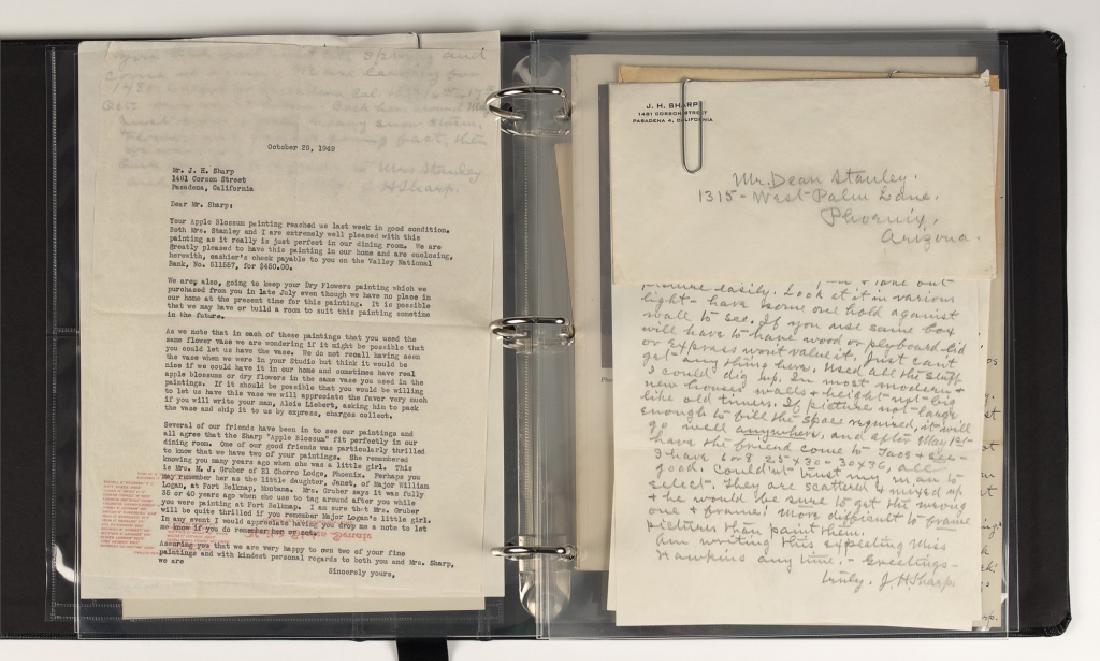 Spring and
come
148
Mrs Stanley
JHSharp.
October 25, 1949
Mr. J. H. Sharp
1481 Corson Street
Pasadena, California
Dear Mr. Sharp:
Your Apple Blossom painting reached us last week in good condition.
Both Mrs. Stanley and I are extremely well pleased with this
painting as it really is just perfect in our dining room. We are
greatly pleased to have this painting in our home and are enclosing,
herewith, cashier's check payable to you on the Valley National
Bank, No. 511557, for $450.00.
We are, also, going to keep your Dry Flowers painting which we
purchased from you in late July even though we have no place in
our home at the present time for this painting. It is possible
that we may have or build a room to suit this painting sometime
in the future.
As we note that in each of these paintings that you used the
same flower vase we are wondering if it might be possible that
you could let us have the vase. We do not recall having seen
the vase when we were in your Studio but think it would be
nice if we could have it in our home and sometimes have real
apple blossoms or dry flowers in the same vase you used in the
paintings. If it should be possible that you would be willing
to let us have this vase we will appreciate the favor very much
if you will write your man, Alois Liebert, asking him to pack
the vase and ship it to us by express, charges collect.
Several of our friends have been in to see our paintings and
all agree that the Sharp "Apple Blossom" fit perfectly in our
dining room. One of our good friends was particularly thrilled
to know that we have two of your paintings. She remembered
knowing you many years ago when she was a little girl. This
is Mrs. M. J. Gruber of El Chorro Lodge, Phoenix. Perhaps you
may remember her as the little daughter, Janet, of Major William
Logan, at Fort Belknap, Montana. Mrs. Gruber says it was fully
35 or 40 years ago when she use to tag around after you while
you were painting at Fort Belknap. I am sure that Mrs. Gruber
will be quite thrilled if you remember Major Logan's little girl.
In any event I would appreciate having you drop me a note to let
me know if you do remember her or not.
Assuring you that we are very happy to own two of your fine
paintings and with kindest personal regards to both you and Mrs. Sharp,
we are
Sincerely yours,
J. H. SHARP
1481 CORSON STREET
PASADENA 4, CALIFORNIA
Mr. Dean Stanley.
1315 - West Palm Lane.
Phoenix,
Arizona.
picture easily. Look at it in various
light - have some one hold against
wall to see. If you use same box
will have to have wood or plyboard lid
or Express wont value it. Just can't
get anything here. Used all the stuff
I could dig up. In most modern &
new houses walls & height not big
like old times. If picture not large
enough to fill the space required, it will
go well anywhere, and after May 1st-
have the friend come to Taos & see -
I have 6 or 8 25 x 30 - 30 x 36, all
good. Couldn't trust my man to
select. They are scattered & mixed up
& he would be sure to get the wrong
one & frames! More difficult to frame
pictures than paint them.
Am writing this expecting Miss
Hawkins any time. - Greetings -
truly. J. H. Sharp.